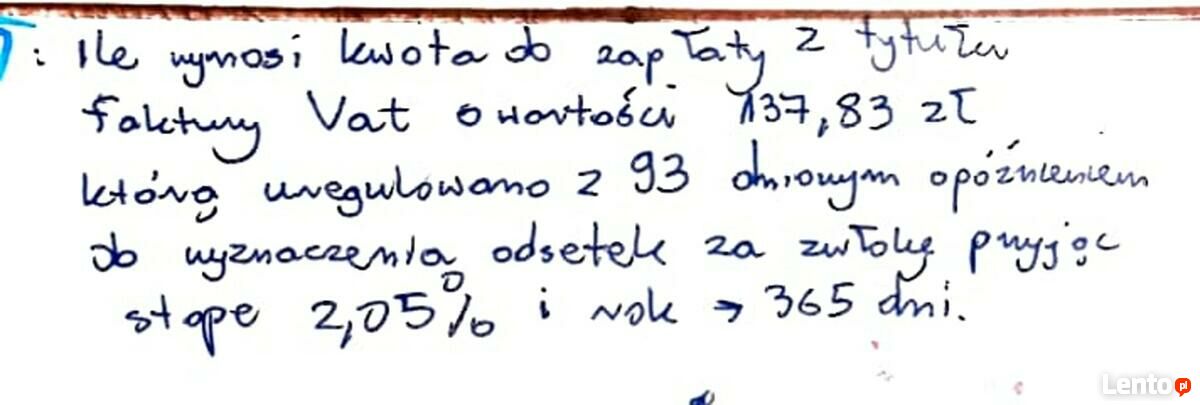 : Ile wynosi kwota do zapłaty z tytułu
faktury Vat o wartości 137,83 zł
którą uregulowano z 93 dniowym opóźnieniem
do wyznaczenia odsetek za zwłokę przyjąc
stope 2,05% i rok → 365 dni.
Lento.pl